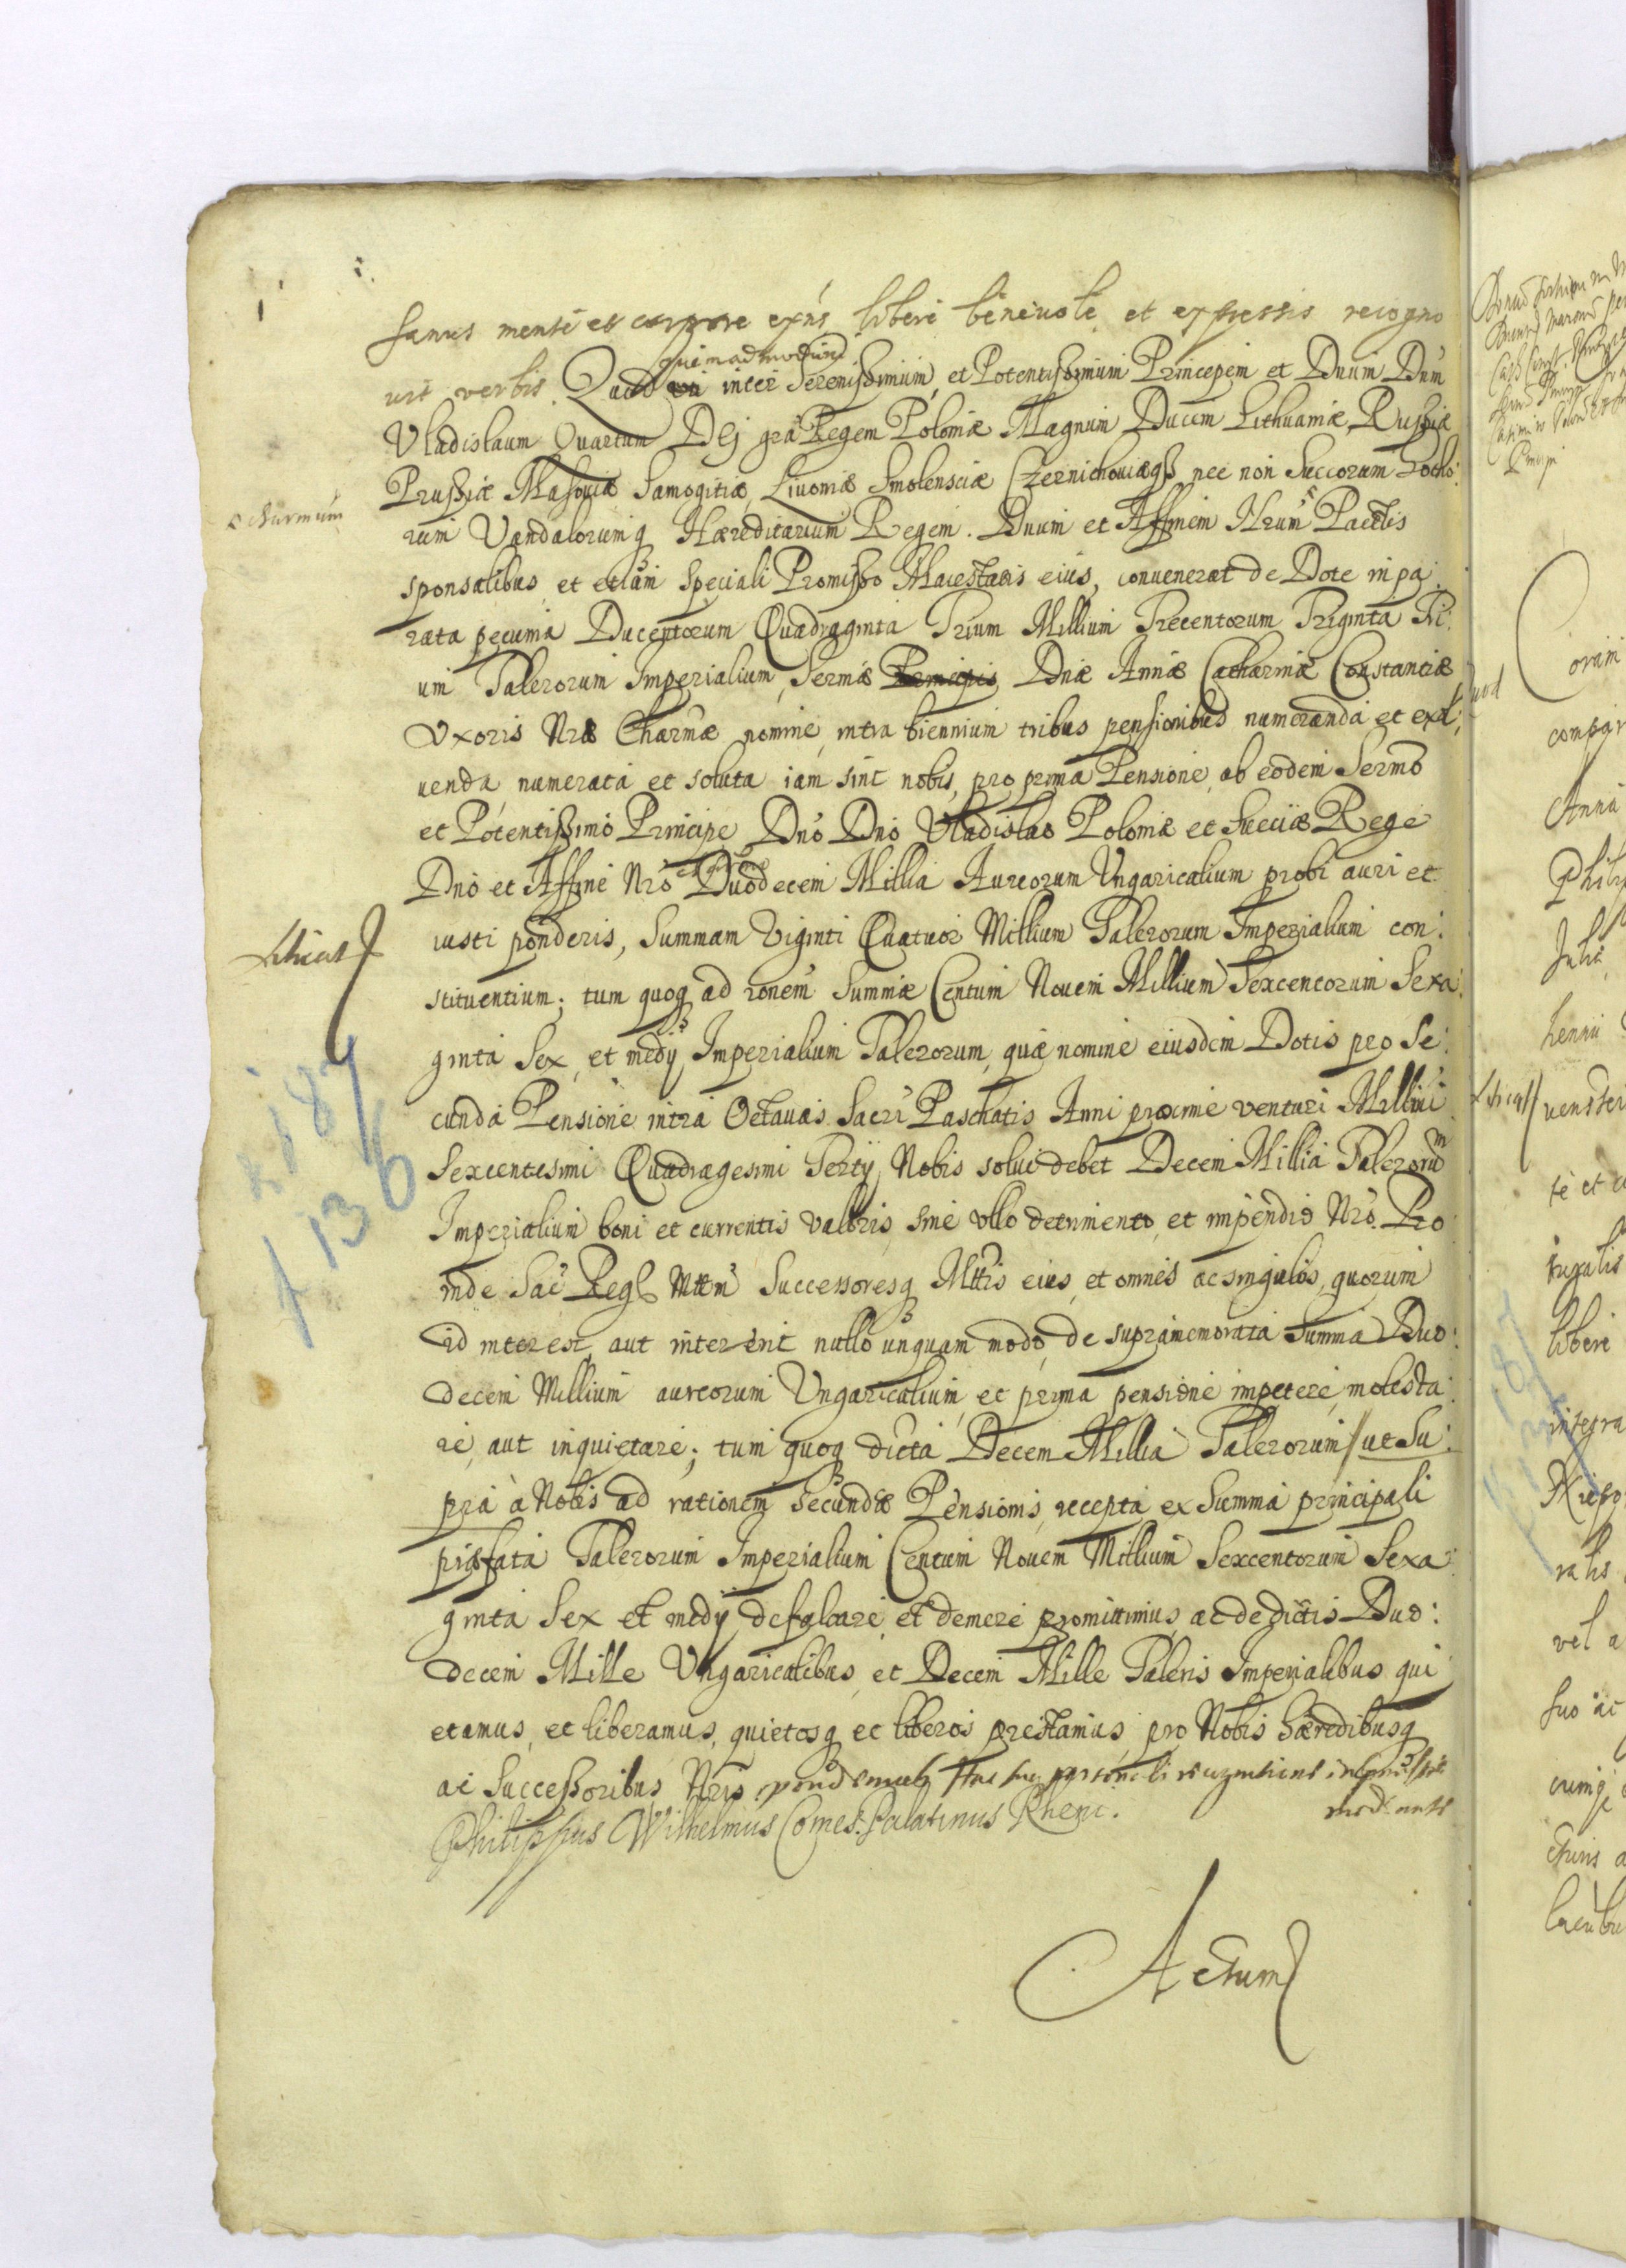 sanus mente et corpore exns libere benevole et expressis recogno
uit verbis. Quod quemadmodum inter Serenissimum et Potentissimum Principem et Dnum Dnum
Vladislaum Quartum Dej gra Regem Poloniæ Magnum Ducem Lithuaniæ, Russiæ
Prussiæ Masouiæ Samogitiæ, Livoniæ Smolensciæ Czernichouiæq nec non Succorum Gotho:
rum Vandalorumq Hæreditarium Regem. Dnum et Affinem Nrum Pactis
charmum
sponsalibus et etiam speciali Promisso Maiestatis eius, convenerat de Dote in pa:
rata pecunia Ducentorum Quadraginta Trium Millium Trecentorum Triginta Tri:
um Talerorum Imperialium, Sermæ Principis Dnæ Annæ Catharinæ Constanciæ
Vxoris Nræ Charmæ nomine, intra biennium tribus pensionibus numeranda et exol:
uenda, numerata et soluta iam sint nobis, pro prima Pensione, ab eodem Sermo
et Potentissimo Principe Dno Dno Vladislao Poloniæ et Sueciæ Rege
Dno et Affine Nro Duodecem Millia Aureorum Ungaricalium probi auri et
iusti ponderis, Summam Viginti Quatuor Millium Talerorum Imperialium con:
stituentium; tum quoq ad ronem Summæ Centum Novem Millium Sexcentorum Sexa:
ginta Sex, et medij Imperialium Talerorum, quæ nomine eiusdem Dotis pro Se:
cunda Pensione intra Octauas Sacri Paschatis Anni proxime venturi Millmi
Sexcentesimi Quadragesimi Tertij Nobis solui debet Decem Millia Talerorum
Imperialium boni et currentis valoris, sine ullo detrimento, et impendio Nro. Pro
inde Sac Reg Mttem Successoresq Mttis eius, et omnes ac singulos, quorum
id interest, aut intererit nullo unquam modo, de supramemorata Summa Duo:
decem Millium aureorum Ungaricalium, et prima pensione impetere, molesta:
re, aut inquietare; tum quoq dicta Decem Millia Talerorum / ut Su:
pra à Nobis ad rationem Secundæ Pensionis, recepta ex Summa principali
præfata Talerorum Imperialium Centum Novem Millium Sexcentorum Sexa:
ginta Sex et medij defalcare, et demere promittimus, ac de dictis Duo:
decem Mille Ungaricalibus, et Decem Mille Taleris Imperialibus qui
etamus, et liberamus, quietosq et liberos præstamus, pro Nobis hæredibusq
ac Successoribus Nris
Philippus Wilhelmus Comes Palatinus Rheni.
Actum
187
f 136